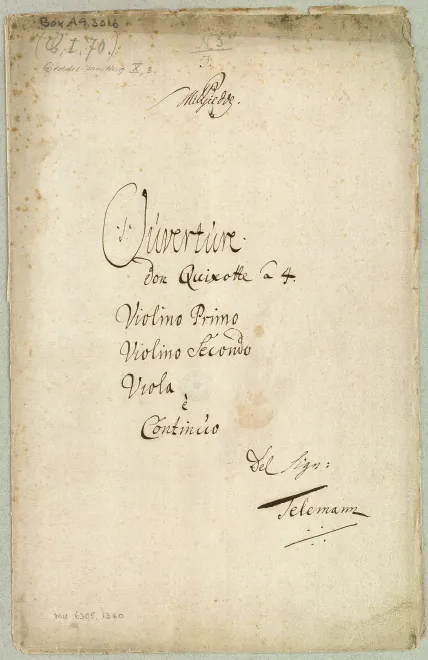 Box A4.3016
(C. I, 70.)
X, 3.
Ouverture.
don Quixotte à 4.
Violino Primo
Violino Secondo
Viola
è
Continuo
Del Sign:
Telemann
mu 6305.1340